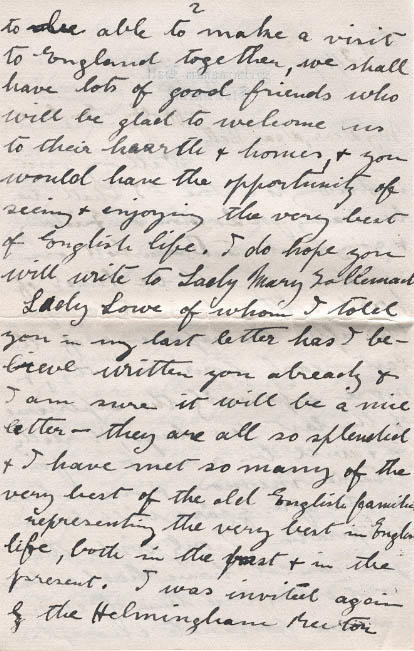 2
to be able to make a visit
to England together, we shall
have lots of good friends who
will be glad to welcome us
to their hearth & homes, & you
would have the opportunity of
seeing & enjoying the very best
of English life. I do hope you
will write to Lady Mary Tollemach
Lady Lowe of whom I told
you in my last letter has I be-
lieve written you already &
I am sure it will be a nice
letter - they are all so splendid
& I have met so many of the
very best of the old English families
representing the very best in English
life, both in the past & in the
present. I was invited again
to the Helmingham